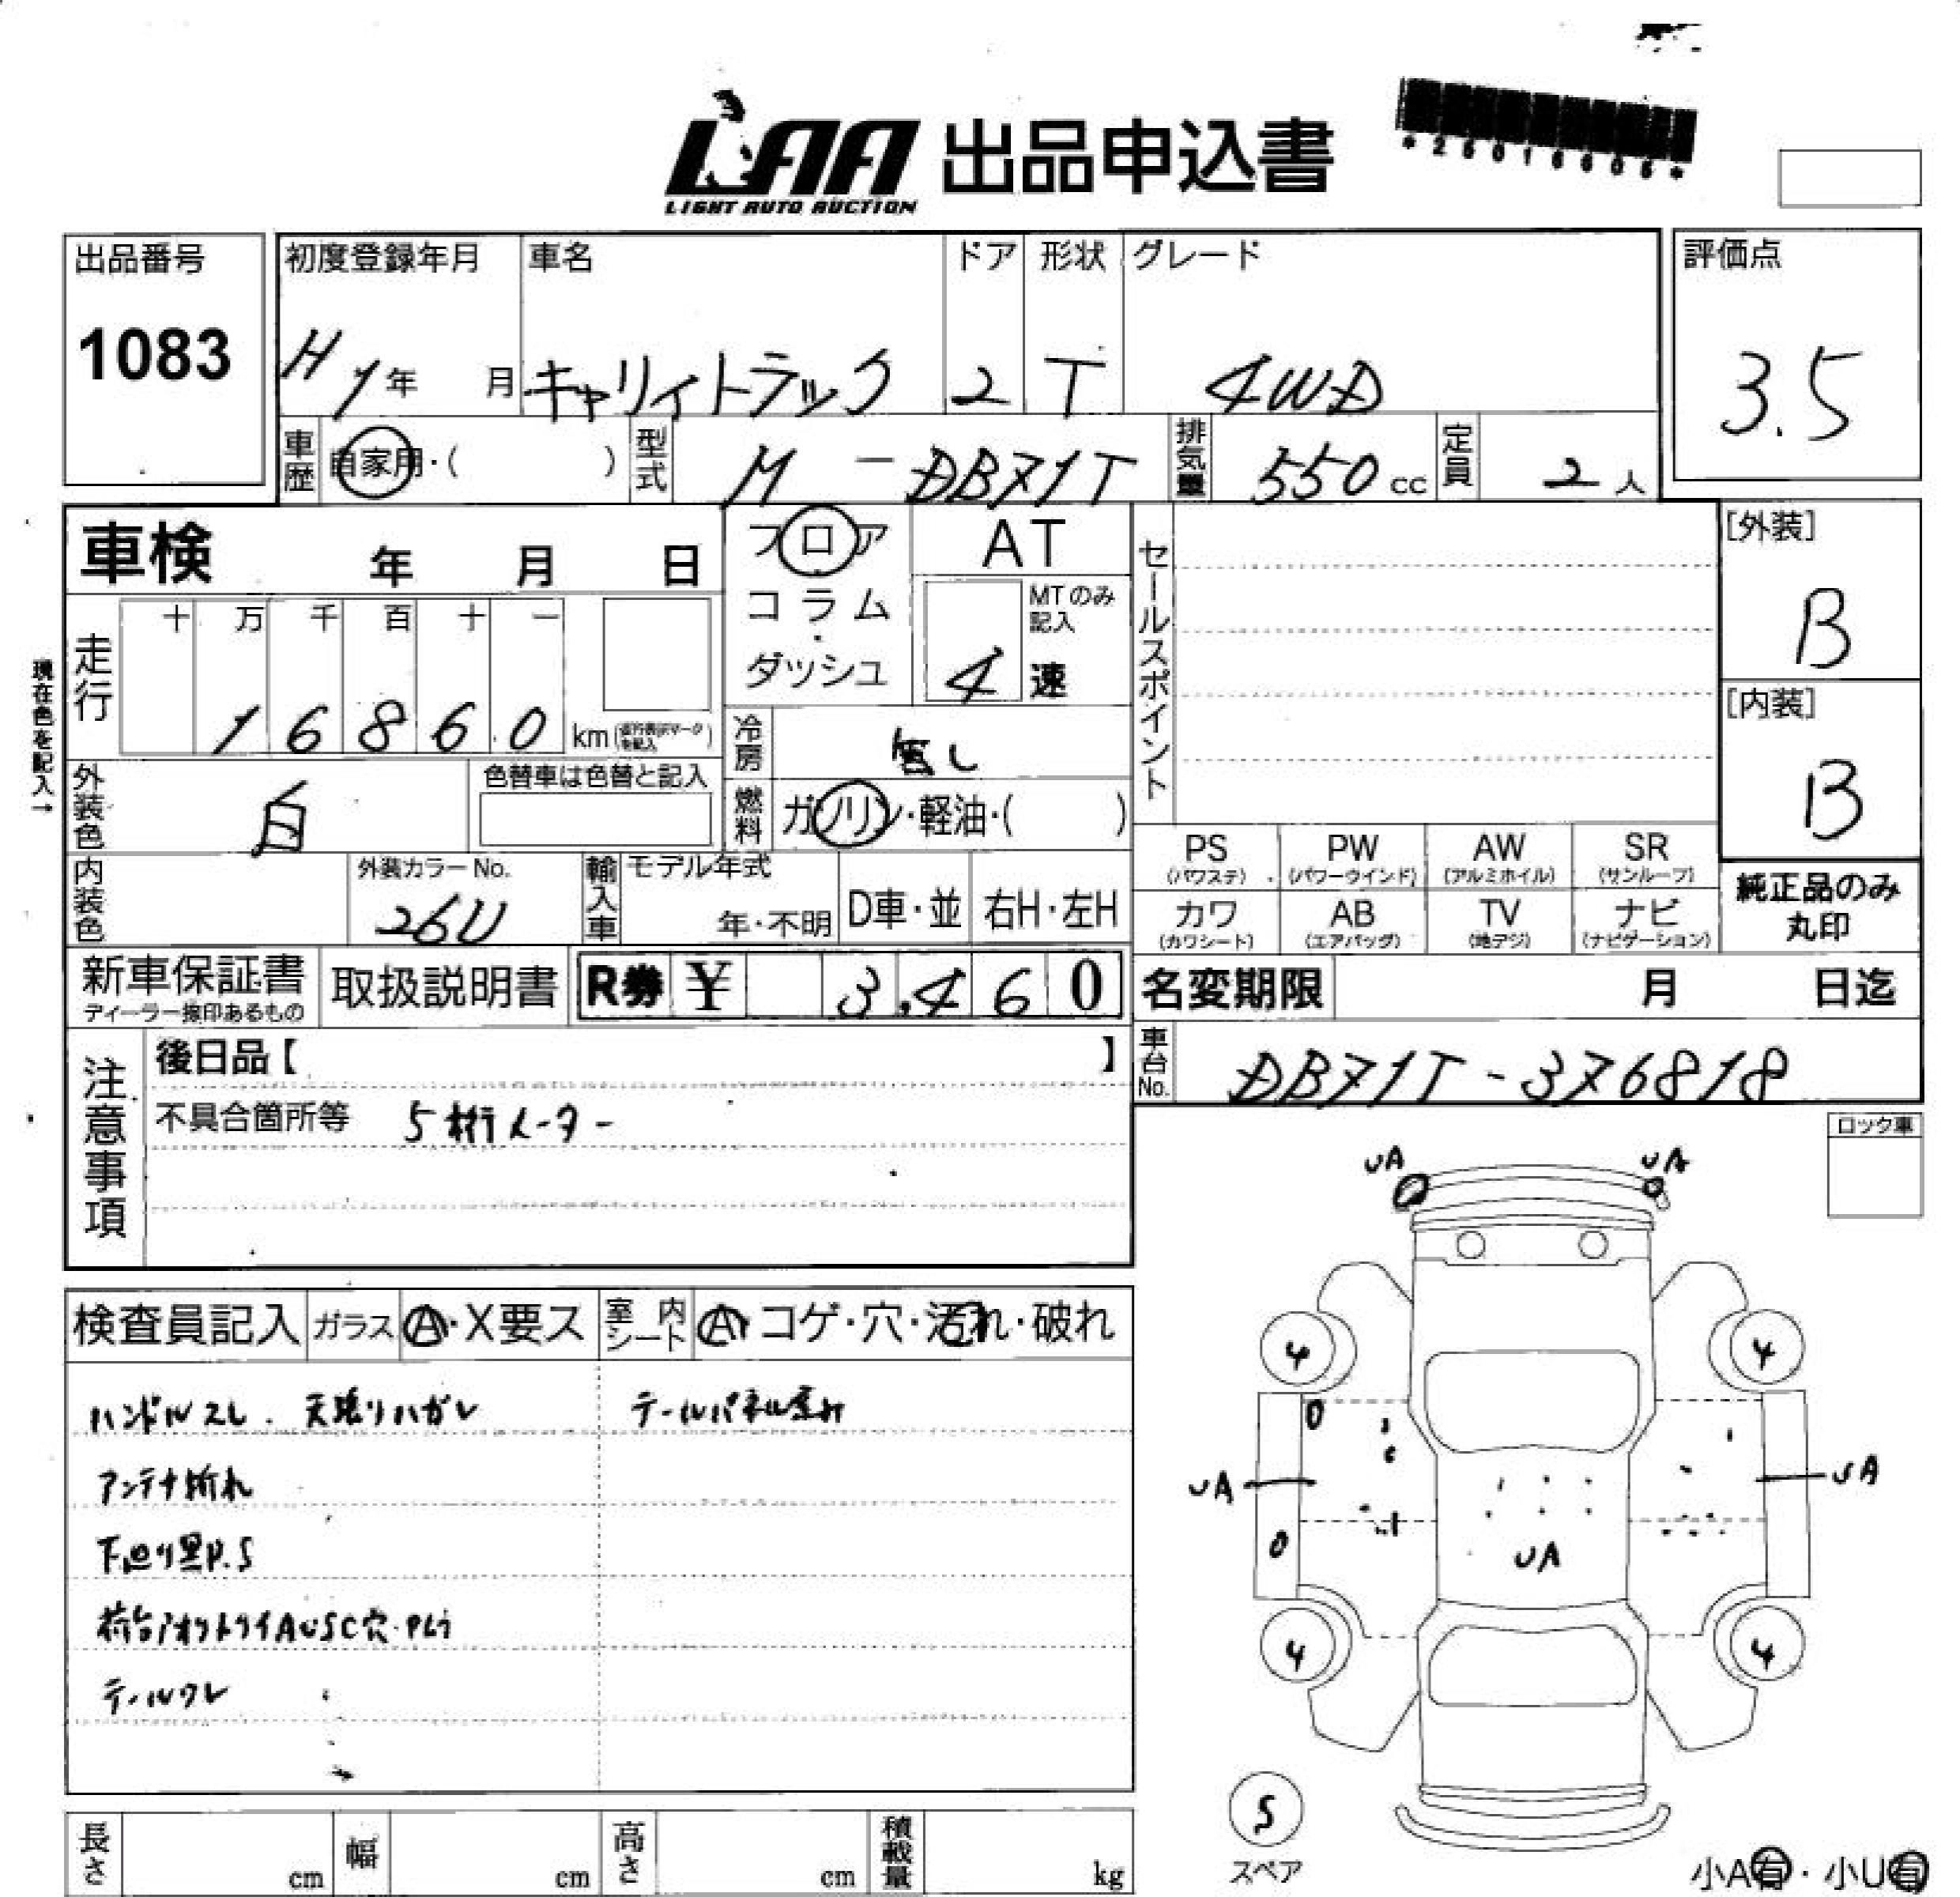 LAA 出品申込書
LIGHT AUTO AUCTION
*26016606*
出品番号 初度登録年月 車名 ドア 形状 グレード 評価点
1083 H1年 月 キャリイトラック 2 T 4WD 3.5
車歴 自家用・( ) 型式 M-DB71T 排気量 550cc 定員 2人
車検 年 月 日 フロア AT セールスポイント [外装]
コラム MTのみ記入 B
ダッシュ 4速
走行 十 万 千 百 十 一
16860 km
現在色を記入→
冷房 無し [内装]
外装色 白 色替車は色替と記入 燃料 ガソリン・軽油・( ) B
PS (パワステ) PW (パワーウインド) AW (アルミホイル) SR (サンルーフ)
内装色 外装カラーNo. 26U 輸入車 モデル年式 年・不明 D車・並 右H・左H
カワ (カワシート) AB (エアバッグ) TV (地デジ) ナビ (ナビゲーション) 純正品のみ丸印
新車保証書 ディーラー捺印あるもの 取扱説明書 R券 ¥ 3,460 名変期限 月 日迄
注意事項 後日品【 】 車台No. DB71T-376818
不具合箇所等 5桁メーター
ロック車
UA UA
検査員記入 ガラス A・X要ス 室内シート A・コゲ・穴・汚れ・破れ
4 4
ハンドルスレ. 天張りハガレ テールパネル歪み
アンテナ折れ
UA UA
下回り黒P.S
UA
荷台アオリトリイAUSC穴・PLラ
テールワレ
4 4
S
スペア
長さ cm 幅 cm 高さ cm 積載量 kg
小A有・小U有